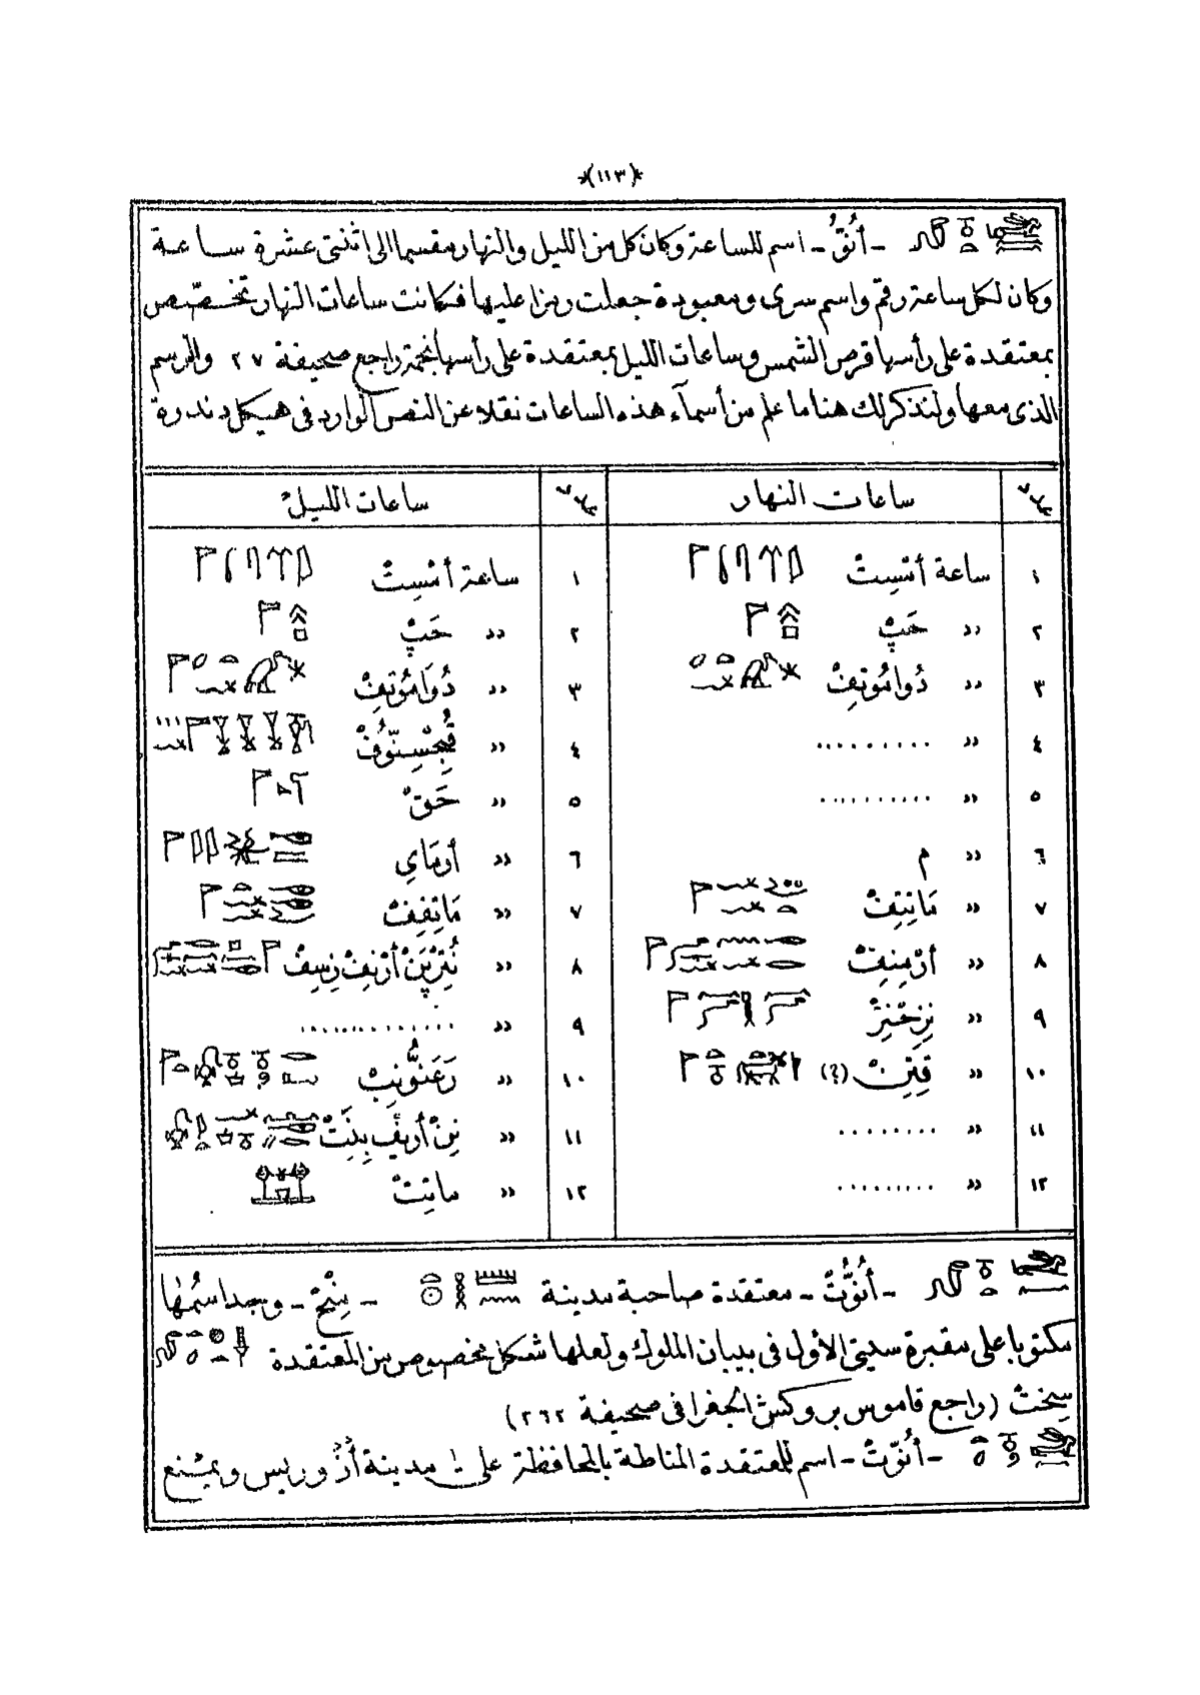 *(١١٣)*
ـ أُنُتُ ـ اسم للساعة وكان كل من الليل والنهار مقسما الى اثنتى عشرة ساعة
وكان لكل ساعة رقم واسم سرى ومعبودة جعلت رمزا عليها فكانت ساعات النهار تخصّص
بمعتقدة على رأسها قرص الشمس وساعات الليل بمعتقدة على رأسها نجمة راجع صحيفة ٢٧ والرسم
الذى معها ولنذكر لك هنا ما علم من أسمآء هذه الساعات نقلا عن النص الوارد فى هيكل دندرة
عدد ساعات النهار عدد ساعات الليل
١ ساعة أمْسِتْ ١ ساعة أمْسِتْ
٢ » حَپْ ٢ » حَپْ
٣ » دُوامُوتِفْ ٣ » دُوَامُوتِفْ
٤ » .......... ٤ »
٥ » .......... ٥ » حَقْ
٦ » م ٦ » أرمَاىِ
٧ » مَانِتِفْ ٧ » مَاتِفِفْ
٨ » أرْمِنِفْ ٨ » نُتِرْپَنْ أرْنِفْ زِسِفْ
٩ » نِزِحْنِزْ ٩ » ............
١٠ » قِنِنْ (؟) ١٠ » رَعَنُوِّنِبْ
١١ » ......... ١١ »
١٢ » ......... ١٢ » ماتِتْ
ـ أُنُوُّتُ ـ معتقدة صاحبة مدينة ـ مِنْحْ ـ وجد اسمُها
مكتوبا على مقبرة سيتى الأول فى بيبان الملوك ولعلها شكل مخصوص من المعتقدة
سِخت (راجع قاموس بروكش الجغرافى صحيفة ٢٦٢)
ـ أُنُوّتْ ـ اسم للمعتقدة المناطة بالمحافظة على مدينة أزُوريس ويمنع